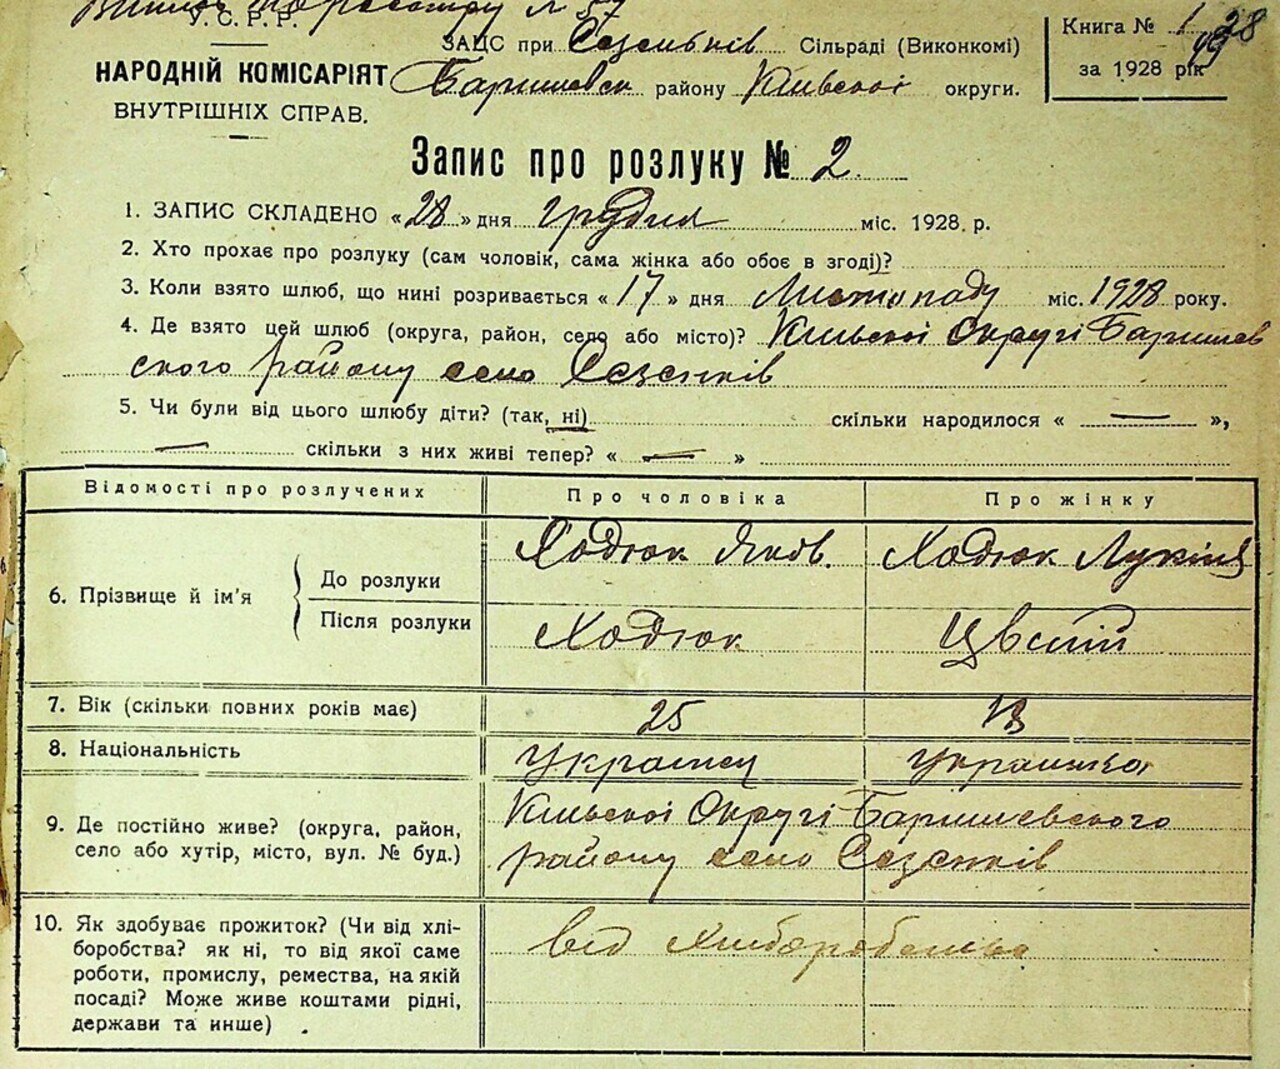 У. С. Р. Р.
ЗАЦС при Сезеньків Сільраді (Виконкомі)
Книга № 1
НАРОДНІЙ КОМІСАРІЯТ
Баришевск району Київської округи.
за 1928 рік
ВНУТРІШНІХ СПРАВ.
Запис про розлуку № 2.
1. ЗАПИС СКЛАДЕНО «28» дня грудня міс. 1928 р.
2. Хто прохає про розлуку (сам чоловік, сама жінка або обоє в згоді)?
3. Коли взято шлюб, що нині розривається «17» дня Листопаду міс. 1928 року.
4. Де взято цей шлюб (округа, район, село або місто)? Київскої Округі Баришев
ского району село Сезенків
5. Чи були від цього шлюбу діти? (так, ні) скільки народилося « — »,
— скільки з них живі тепер? « — »
Відомості про розлучених Про чоловіка Про жінку
6. Прізвище й ім'я
До розлуки Ходюк Яков. Ходюк Лукіия
Після розлуки Ходюк Цветій
7. Вік (скільки повних років має) 25 18
8. Національність Украінец Украинка
9. Де постійно живе? (округа, район,
село або хутір, місто, вул. № буд.)
Київскої Округі Баришевского
району село Сезенків
10. Як здобуває прожиток? (Чи від хлі-
боробства? як ні, то від якої саме
роботи, промислу, ремества, на якій
посаді? Може живе коштами рідні,
держави та инше)
від Хліборобства